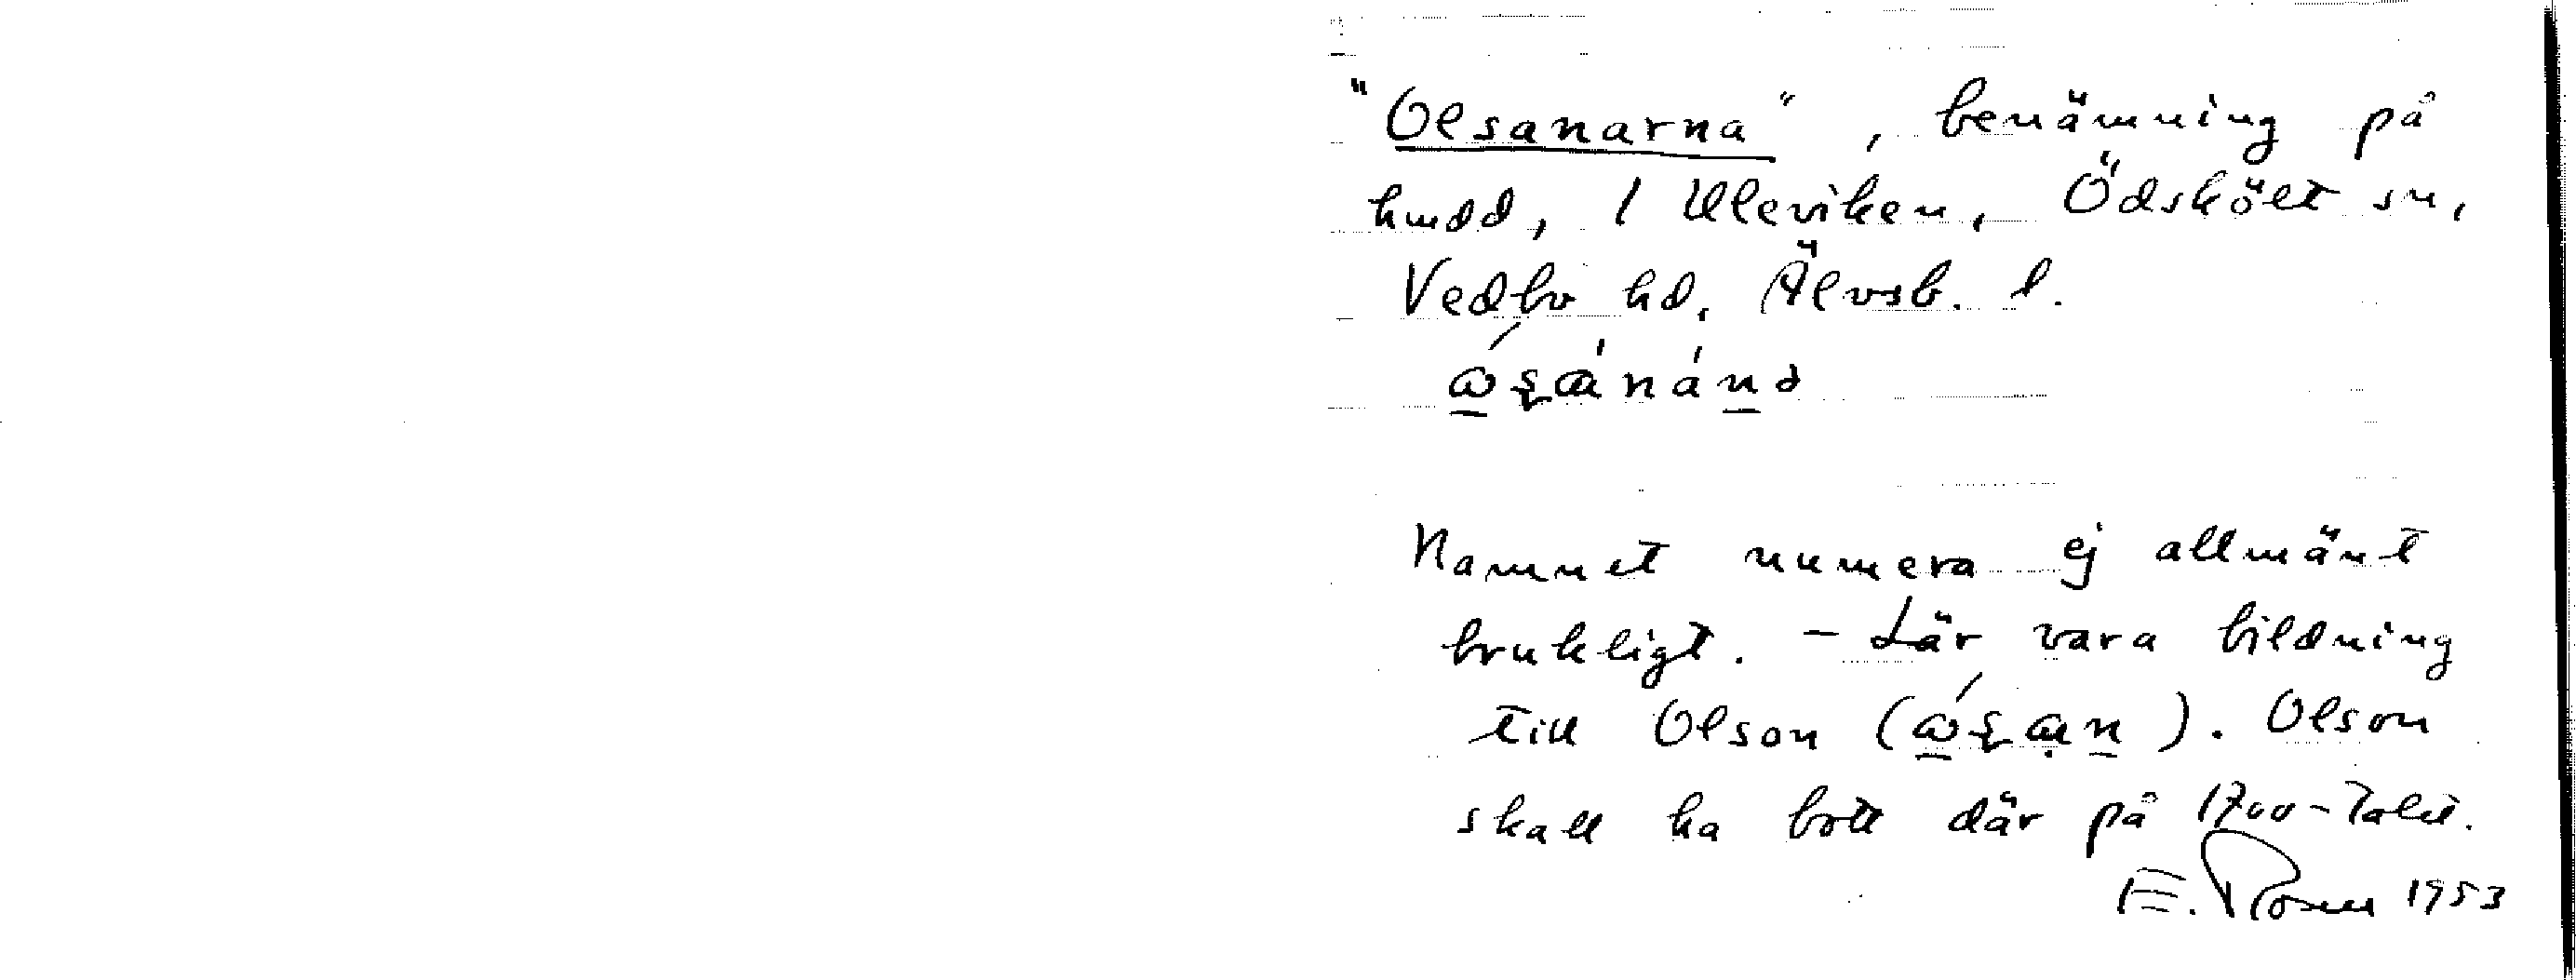 "Olsanarna", benämning på
hmdd, 1 Uleviken, Ödskölt sn,
Vedbo hd, Älvsb. l.
Namnet numera ej allmänt
brukligt. - Lär vara bildning
till Olson ( ). Olson
skall ha bott där på 1700-talet.
E. Rosen 1953